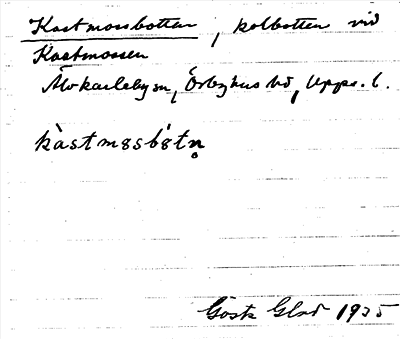 Kastmossbotten, kolbotten vid
Kastmossen
Älvkarleby sn, Örbyhus hd, Upps. l.
kàstmɞsbɞ́tn̥
Gösta Glad 1935